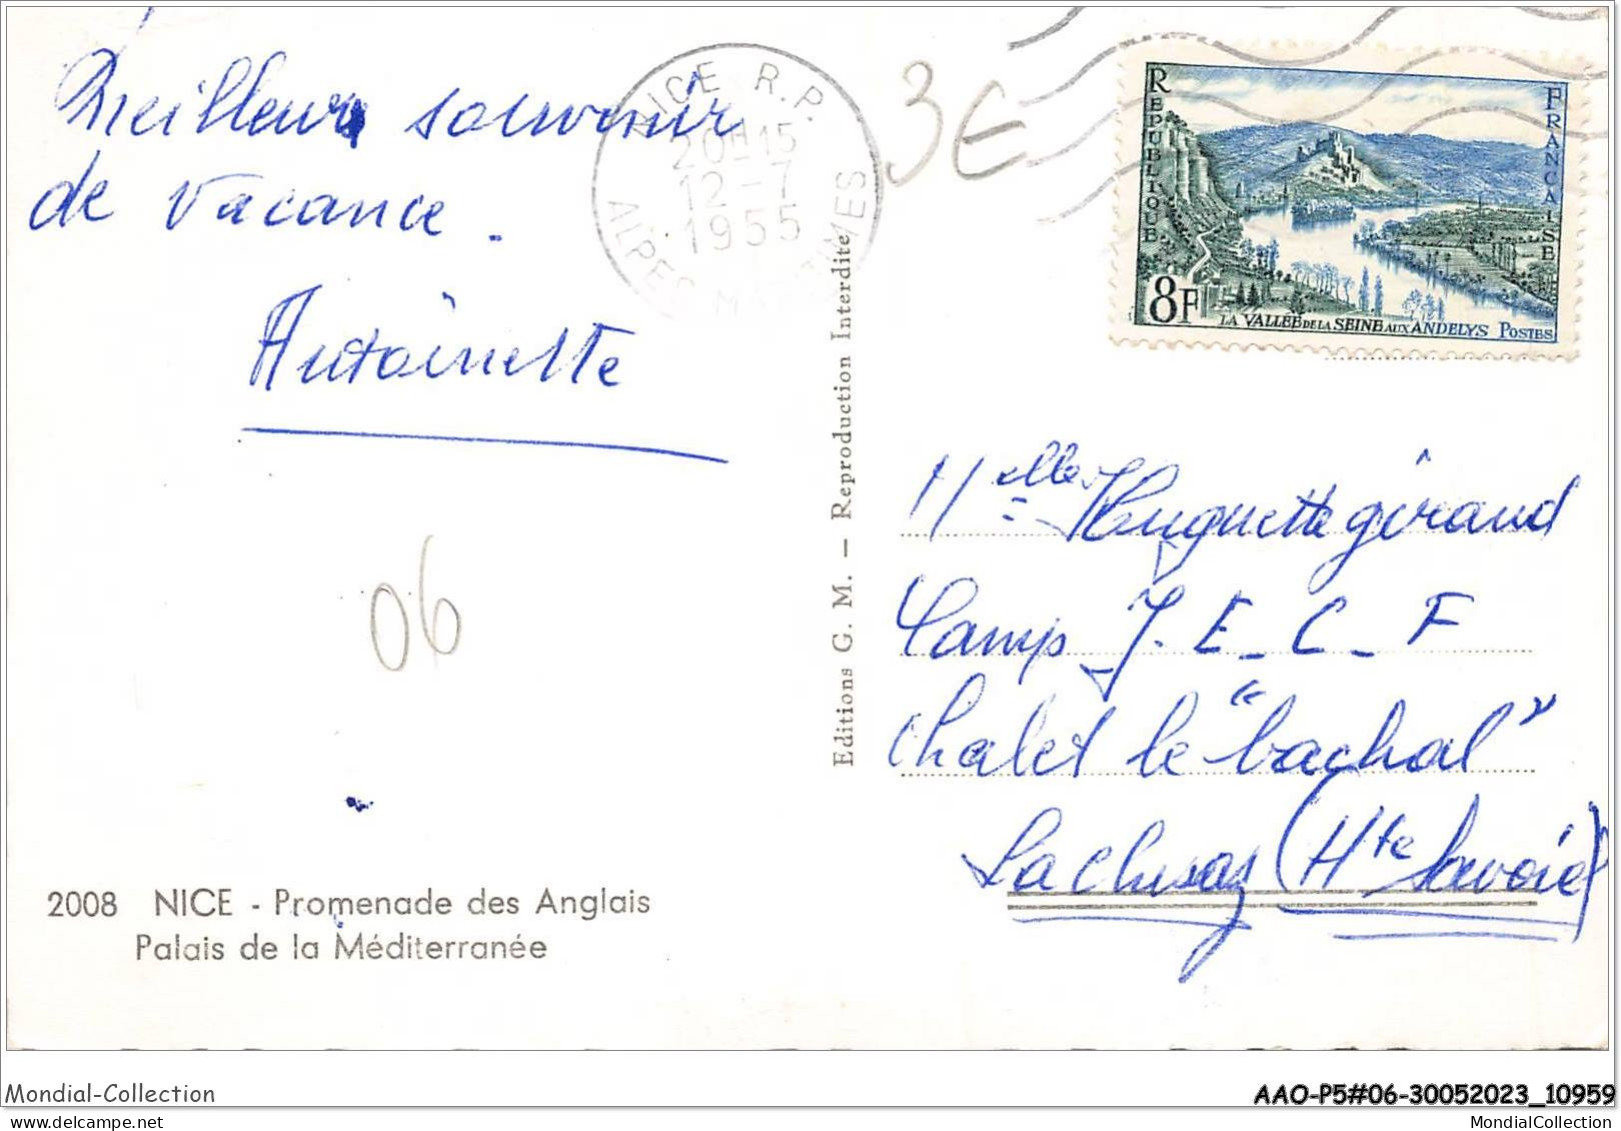 Meilleur souvenir
de vacance.
Antoinette
06
2008 NICE - Promenade des Anglais
Palais de la Méditerranée
Editions G. M. — Reproduction Interdite
NICE R.P.
20H15
12-7
1955
ALPES MARITIMES
3€
REPUBLIQUE FRANCAISE
8F
LA VALLÉE DE LA SEINE AUX ANDELYS POSTES
Melle Huguette Giraud
Camp J. E. C. F
Chalet le "bachal"
La Clusaz (Hte Savoie)
Mondial-Collection
AAO-P5#06-30052023_10959
MondialCollection